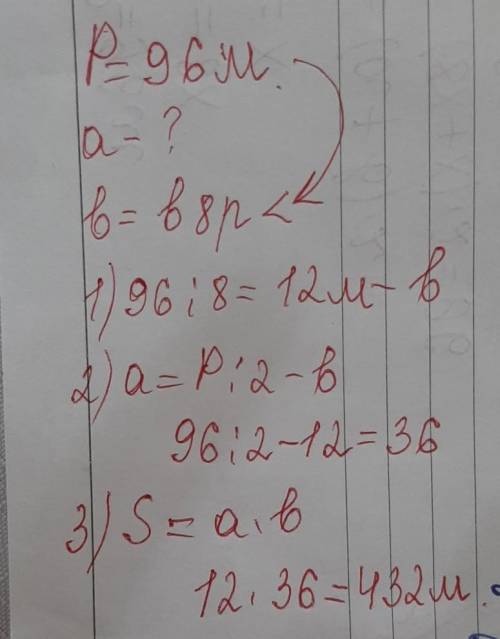 P=96м.
a-?
b= в 8р <
1) 96:8=12м-b
2) a=P:2-b
96:2-12=36
3) S=a·b
12·36=432м.